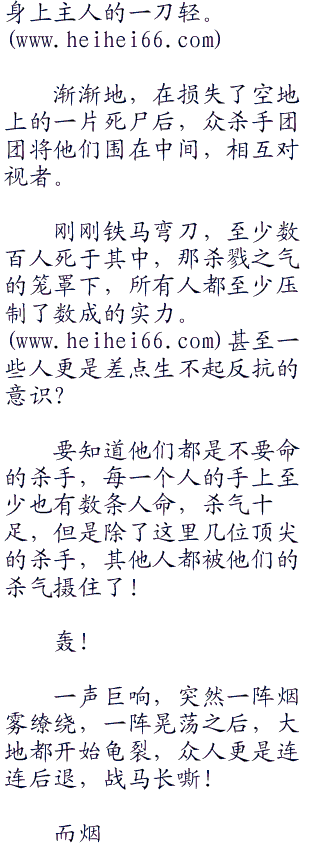 身上主人的一刀轻。
(www.heihei66.com)
渐渐地，在损失了空地
上的一片死尸后，众杀手团
团将他们围在中间，相互对
视者。
刚刚铁马弯刀，至少数
百人死于其中，那杀戮之气
的笼罩下，所有人都至少压
制了数成的实力。
(www.heihei66.com)甚至一
些人更是差点生不起反抗的
意识？
要知道他们都是不要命
的杀手，每一个人的手上至
少也有数条人命，杀气十
足，但是除了这里几位顶尖
的杀手，其他人都被他们的
杀气摄住了！
轰！
一声巨响，突然一阵烟
雾缭绕，一阵晃荡之后，大
地都开始龟裂，众人更是连
连后退，战马长嘶！
而烟